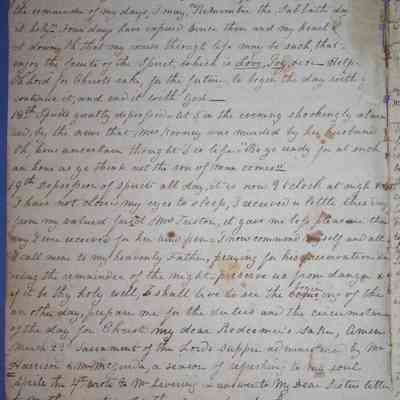 the remainder of my days, I may, "Remember the Sabbath day
days have expired since then and my heart
down, Oh that my course through life may be such, that
enjoy the fruits of the Spirit, which is Love, Joy, Help
Lord for Christs sake, for the future, to begin the day with
continue it, and end it with God
18th Spirits greatly depressed. at 5 in the evening shockingly alarm
ed, by the news that Mrs was murdered by her husband
Oh how uncertain thought I is life. "Be ye ready for at such
an hour as ye think not the son of man comes"
19th depression of spirits all day, it is now 9 oclock at night
I have not closed my eyes to sleep, I received a little
from my valued friend Mrs it gave me less pleasure than
any I ever received from her pen, I now commend myself and all
I call mine to my heavenly Father, praying for his preservation du
ring the remainder of the night. preserve us from danger &
if it be thy holy will, I shall live to see the of the
an other day, prepare me for the duties and the
of the day for Christ my dear Redeemer's sake, Amen
March 23 Sacrament of the Lords supper administered by Mr
Harrison & Mr a season of refreshing to my soul
Aprile the 4th wrote to Mr in answer to My Dear Sisters letter